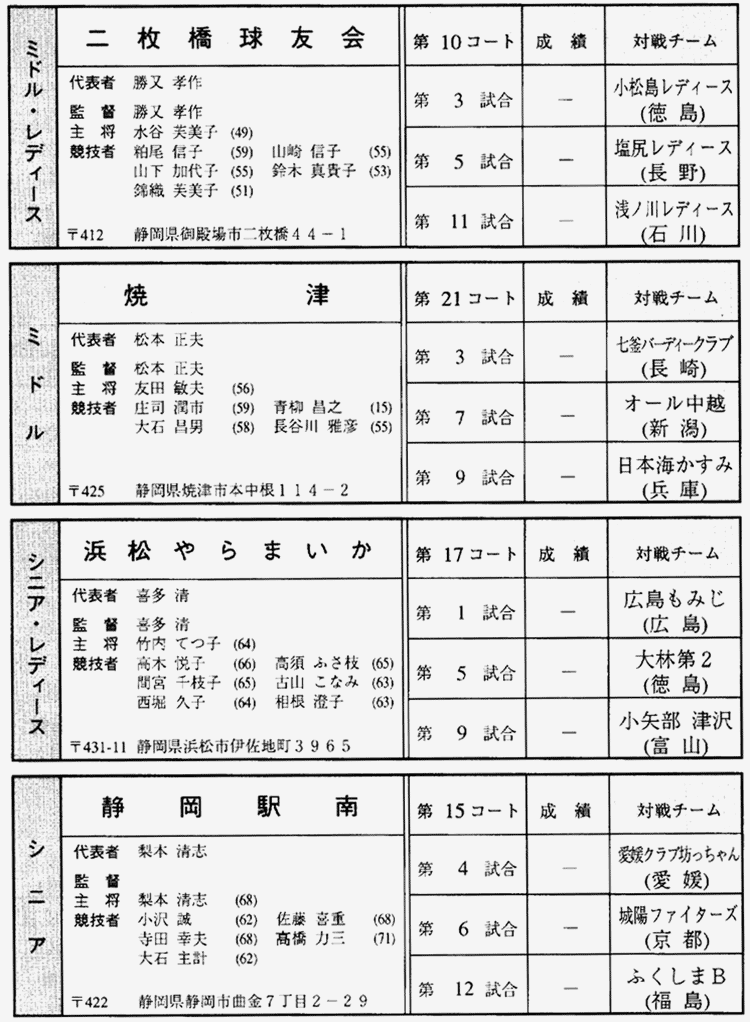 ミドル・レディース
二枚橋球友会
代表者 勝又 孝作
監督 勝又 孝作
主将 水谷 芙美子 (49)
競技者 粕尾 信子 (59) 山崎 信子 (55)
山下 加代子 (55) 鈴木 真貴子 (53)
錦織 芙美子 (51)
〒412 静岡県御殿場市二枚橋44-1
第 10 コート 成績 対戦チーム
第 3 試合 — 小松島レディース
(徳島)
第 5 試合 — 塩尻レディース
(長野)
第 11 試合 — 浅ノ川レディース
(石川)
ミドル
焼津
代表者 松本 正夫
監督 松本 正夫
主将 友田 敏夫 (56)
競技者 庄司 潤市 (59) 青柳 昌之 (15)
大石 昌男 (58) 長谷川 雅彦 (55)
〒425 静岡県焼津市本中根114-2
第 21 コート 成績 対戦チーム
第 3 試合 — 七釜バーディークラブ
(長崎)
第 7 試合 — オール中越
(新潟)
第 9 試合 — 日本海かすみ
(兵庫)
シニア・レディース
浜松やらまいか
代表者 喜多 清
監督 喜多 清
主将 竹内 てつ子 (64)
競技者 高木 悦子 (66) 高須 ふさ枝 (65)
間宮 千枝子 (65) 古山 こなみ (63)
西堀 久子 (64) 相根 澄子 (63)
〒431-11 静岡県浜松市伊佐地町3965
第 17 コート 成績 対戦チーム
第 1 試合 — 広島もみじ
(広島)
第 5 試合 — 大林第2
(徳島)
第 9 試合 — 小矢部 津沢
(富山)
シニア
静岡駅南
代表者 梨本 清志
監督
主将 梨本 清志 (68)
競技者 小沢 誠 (62) 佐藤 喜重 (68)
寺田 幸夫 (68) 高橋 力三 (71)
大石 主計 (62)
〒422 静岡県静岡市曲金7丁目2-29
第 15 コート 成績 対戦チーム
第 4 試合 — 愛媛クラブ坊っちゃん
(愛媛)
第 6 試合 — 城陽ファイターズ
(京都)
第 12 試合 — ふくしまB
(福島)